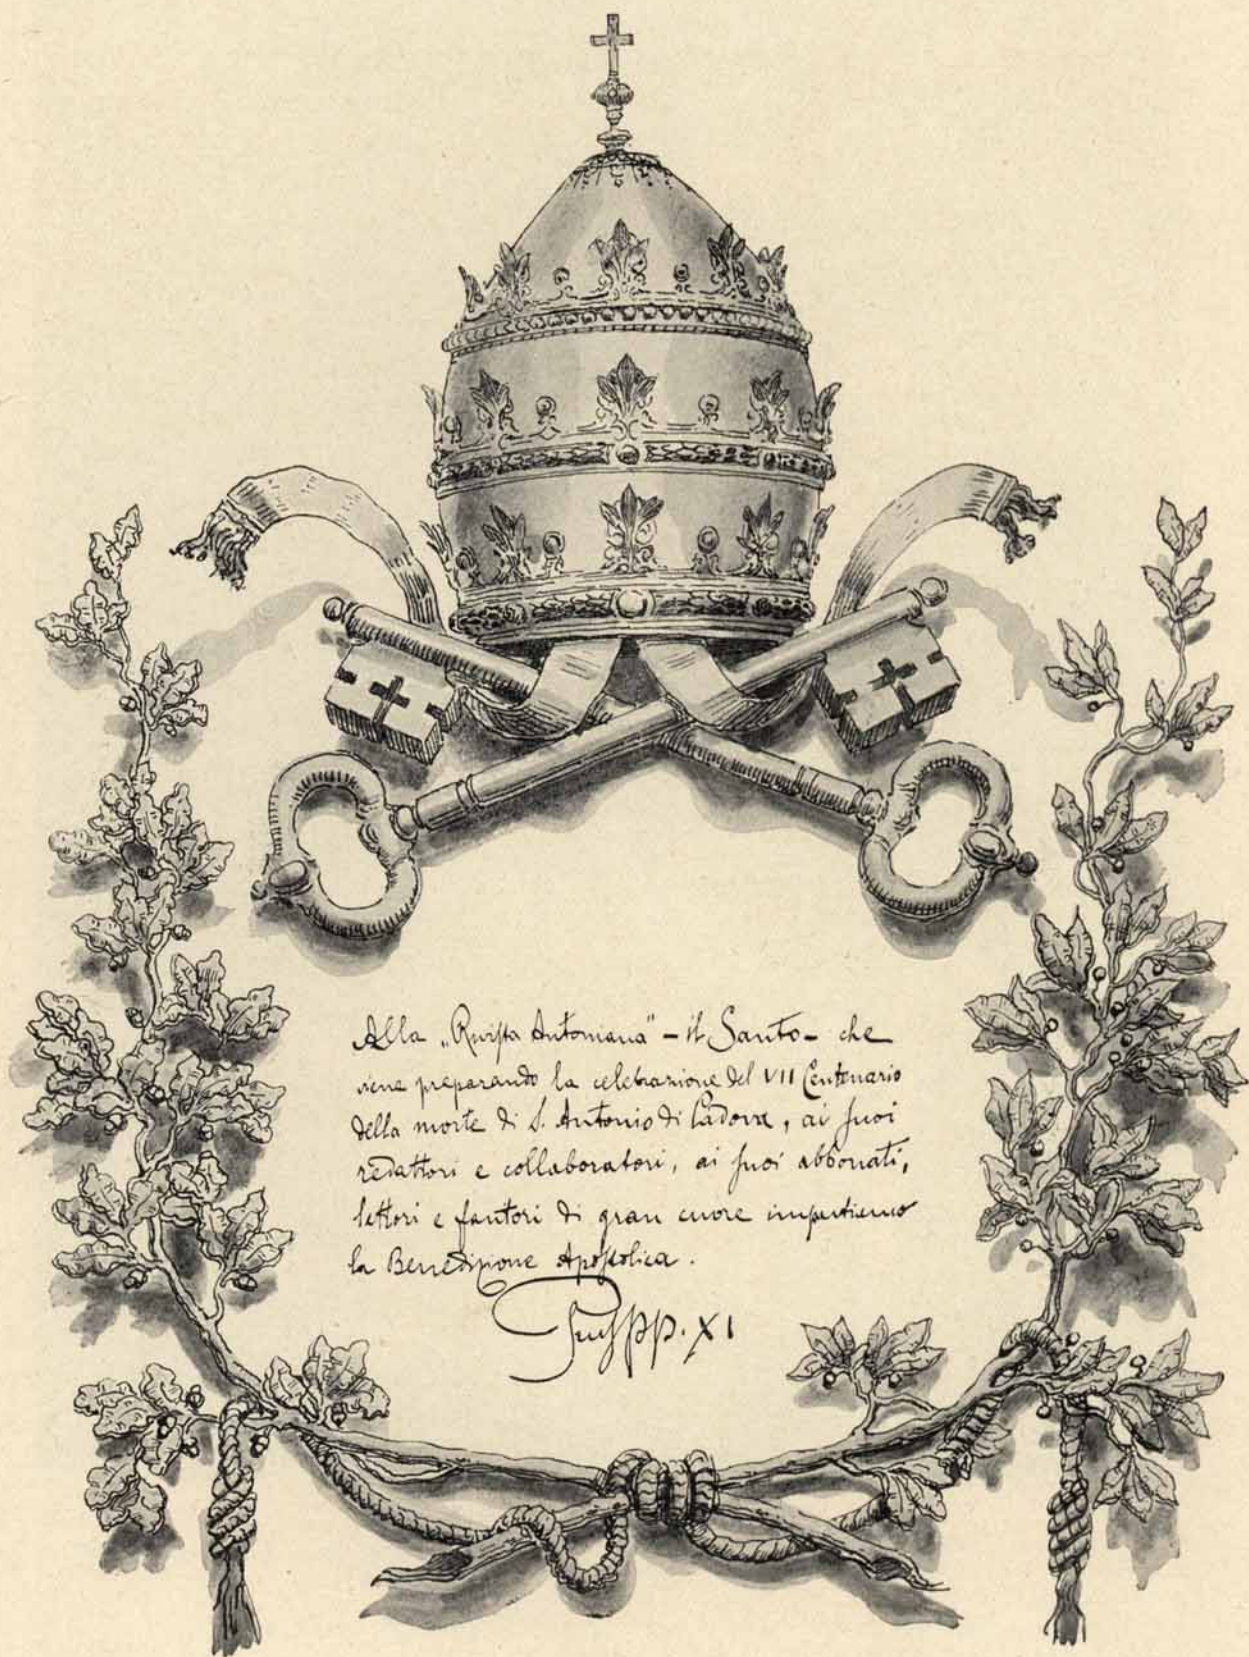 Alla „Rivista Antoniana" – il Santo – che
viene preparando la celebrazione del VII Centenario
della morte di S. Antonio di Padova, ai suoi
redattori e collaboratori, ai suoi abbonati,
lettori e fautori di gran cuore impartiamo
la Benedizione Apostolica.
Pius PP. XI